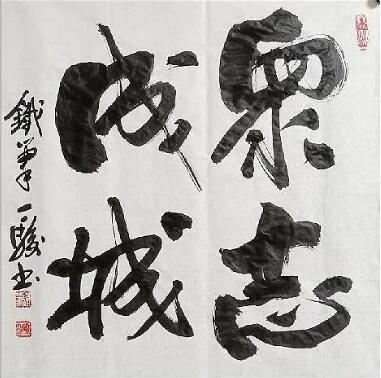 眾志
成城
鐵筆一駿書